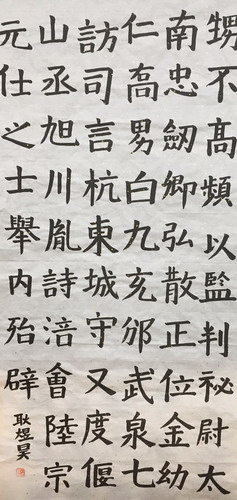 甥不高頻以監判祕尉太
南忠劒卿弘散正位金幼
仁高男白九充邠武泉七
訪司言杭東城守又度偃
山丞旭川胤詩涪會陸宗
元仕之士舉内殆辟
耿煜昊